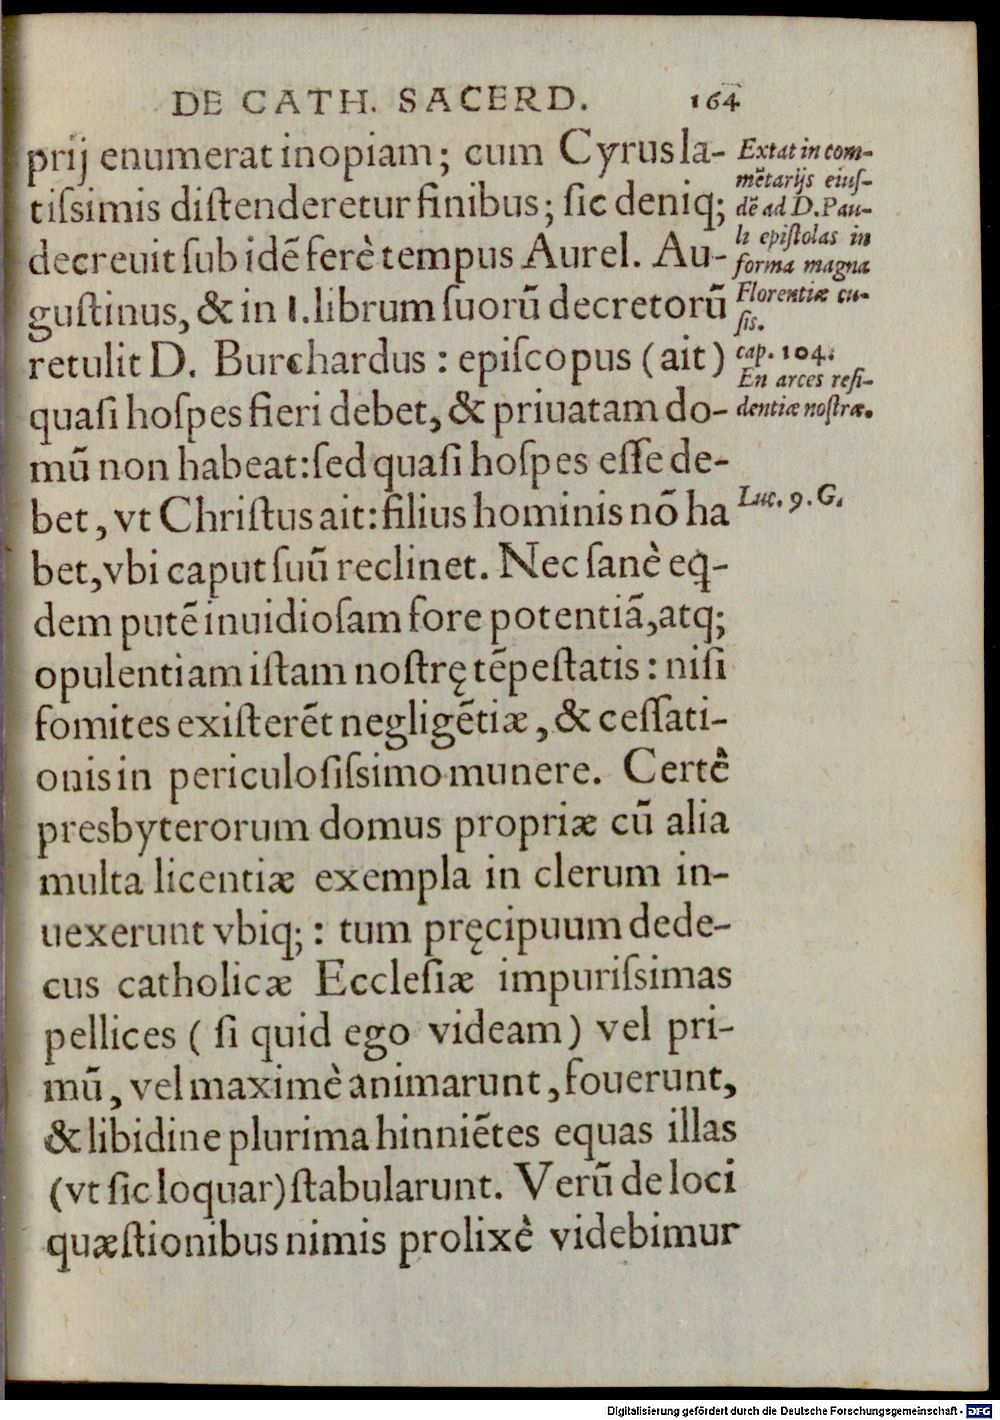 DE CATH. SACERD. 164
prij enumerat inopiam; cum Cyrus la-
tiſsimis diſtenderetur finibus; ſic deniq;
decreuit ſub idē ferè tempus Aurel. Au-
guſtinus, & in I. librum ſuorū decretorū
retulit D. Burchardus : epiſcopus (ait)
quaſi hoſpes fieri debet, & priuatam do-
mū non habeat: ſed quaſi hoſpes eſſe de-
bet, vt Chriſtus ait: filius hominis nō ha
bet, vbi caput ſuū reclinet. Nec ſanè eq-
dem putē inuidioſam fore potentiā, atq;
opulentiam iſtam noſtrę tēpeſtatis : niſi
fomites exiſterēt negligētiæ, & ceſſati-
onis in periculoſiſsimo munere. Certè
presbyterorum domus propriæ cū alia
multa licentiæ exempla in clerum in-
uexerunt vbiq; : tum pręcipuum dede-
cus catholicæ Eccleſiæ impuriſsimas
pellices ( ſi quid ego videam) vel pri-
mū, vel maximè animarunt, fouerunt,
& libidine plurima hinniētes equas illas
(vt ſic loquar) ſtabularunt. Verū de loci
quæſtionibus nimis prolixè videbimur
Extat in com-
mētarijs eiuſ-
dē ad D. Pau-
li epiſtolas in
forma magna
Florentiæ cu-
ſis.
cap. 104.
En arces reſi-
dentiæ noſtræ.
Luc. 9. G.
Digitalisierung gefördert durch die Deutsche Forschungsgemeinschaft - DFG